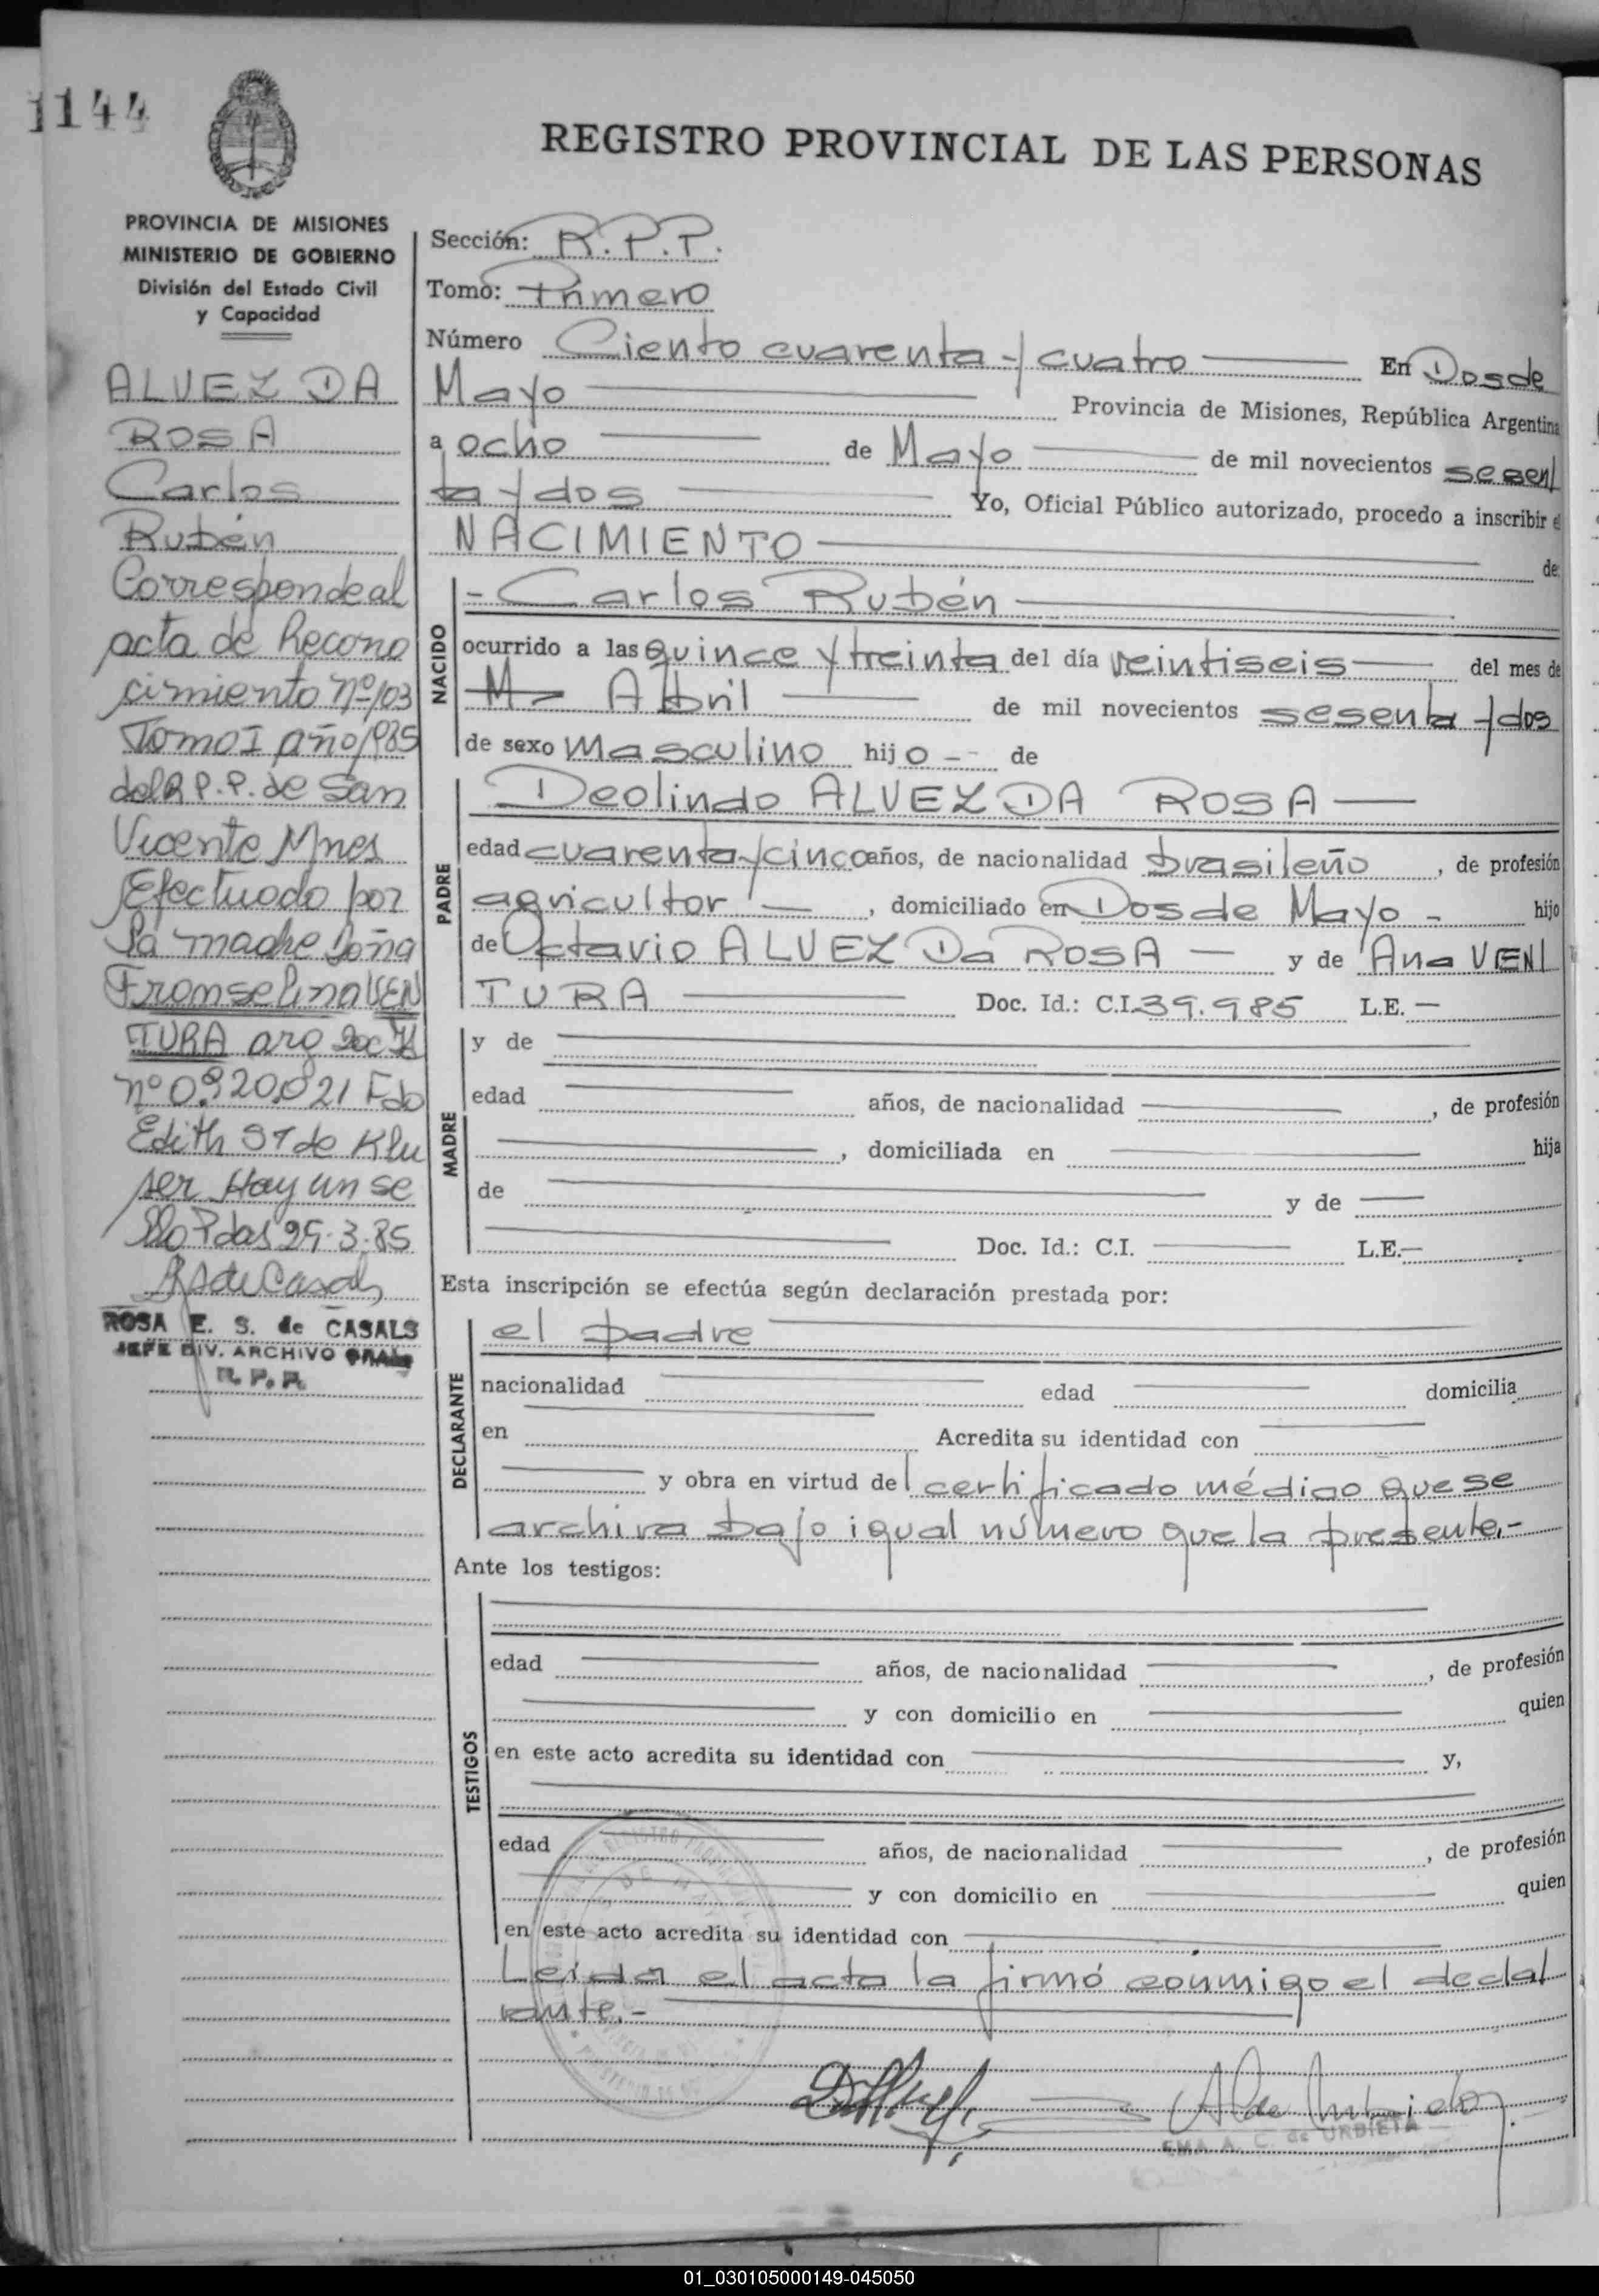 1144
REGISTRO PROVINCIAL DE LAS PERSONAS
PROVINCIA DE MISIONES
MINISTERIO DE GOBIERNO
División del Estado Civil
y Capacidad
ALVEZ DA
ROSA
Carlos
Rubén
Corresponde al
acta de Recono
cimiento Nº 103
Tomo I año 1985
del R.P.P. de San
Vicente Mnes
Efectuado por
la madre Doña
Franselina VEN
TURA arg Doc
nº 0.920.021 Fdo
Edith ST de Klu
ser Hay un se
llo Pdas 29-3-85
ROSA E. S. de CASALS
JEFE DIV. ARCHIVO GRAL.
R. P. P.
Sección: R.P.P.
Tomo: Primero
Número Ciento cuarenta y cuatro En Dos de
Mayo Provincia de Misiones, República Argentina
a ocho de Mayo de mil novecientos sesen
ta y dos Yo, Oficial Público autorizado, procedo a inscribir el
NACIMIENTO de:
NACIDO
- Carlos Rubén
ocurrido a las quince y treinta del día veintiseis del mes de
M Abril de mil novecientos sesenta y dos
de sexo Masculino hij o - de
PADRE
Deolindo ALVEZ DA ROSA
edad cuarenta y cinco años, de nacionalidad brasileño, de profesión
agricultor, domiciliado en Dos de Mayo - hijo
de Octavio ALVEZ Da ROSA y de Ana VEN
TURA Doc. Id.: C.I. 39.985 L.E. —
MADRE
y de
edad años, de nacionalidad , de profesión
, domiciliada en hija
de y de
Doc. Id.: C.I. L.E.
Esta inscripción se efectúa según declaración prestada por:
DECLARANTE
el padre
nacionalidad edad domicilia
en Acredita su identidad con
y obra en virtud del certificado médico que se
archiva bajo igual número que la presente.-
Ante los testigos:
TESTIGOS
edad años, de nacionalidad , de profesión
y con domicilio en quien
en este acto acredita su identidad con y,
edad años, de nacionalidad , de profesión
y con domicilio en quien
en este acto acredita su identidad con
Leída el acta la firmó conmigo el decla
rante.-
EMA A. C. de URBIETA
01_030105000149-045050